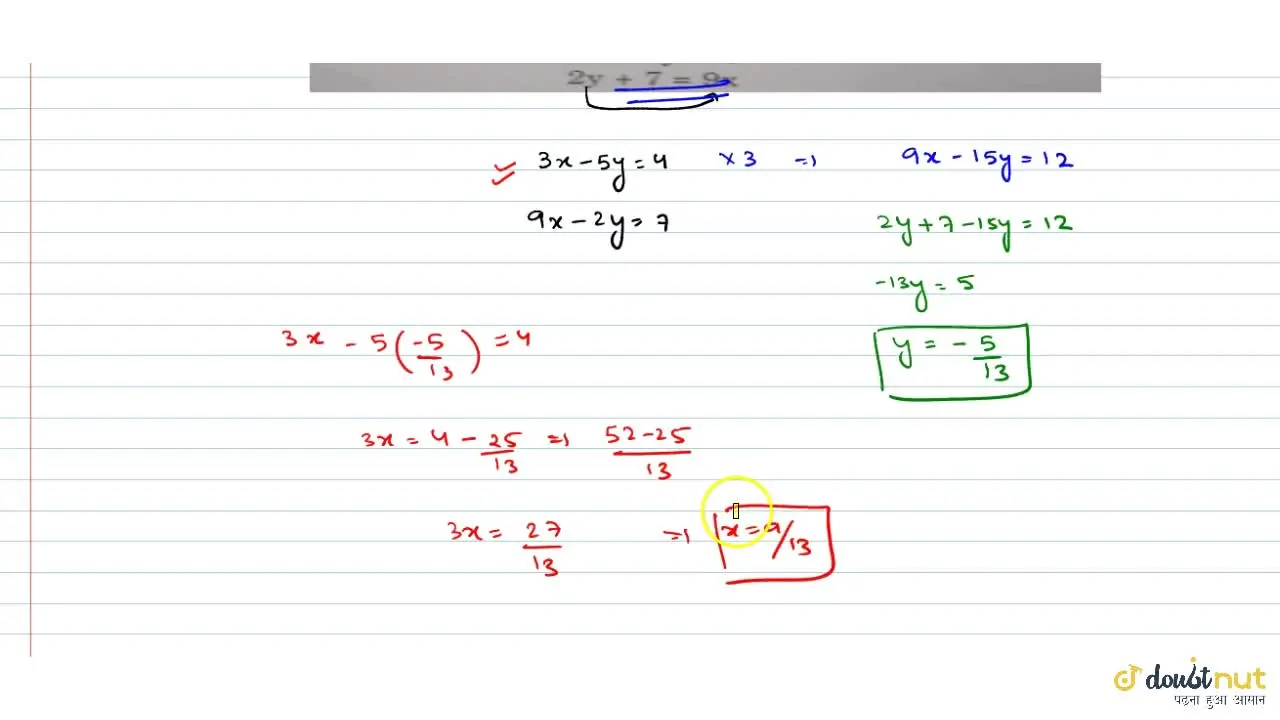 2y + 7 = 9x
3x - 5y = 4 × 3 ⇒ 9x - 15y = 12
9x - 2y = 7
2y + 7 - 15y = 12
-13y = 5
y = - 5/13
3x - 5(-5/13) = 4
3x = 4 - 25/13 ⇒ 52-25/13
3x = 27/13 ⇒ x = 9/13
doubtnut
पढ़ना हुआ आसान